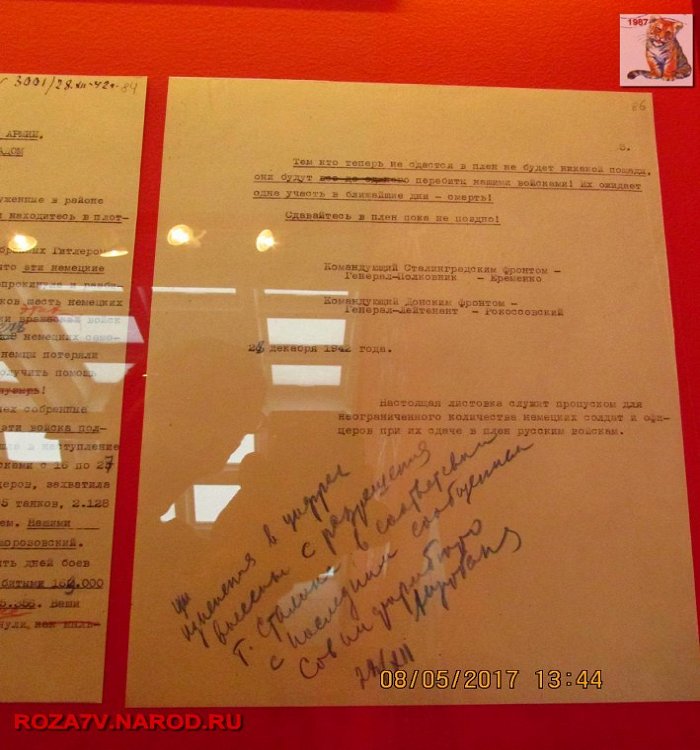 1987
3001/28.XII-42г. 84
АРМИИ,
АДОМ
уженные в районе
и находитесь в плот-
бранных Гитлером
что эти немецкие
опрокинула и разби-
ков шесть немецких
ки вражеских войск
немецких само-
немцы потеряли
олучить помощь
пузырь!
чех собранные
эти войска пол-
шие в наступление
сками с 16 по 27
церов, захватила
5 танков, 2.128
ем. Нашими
морозовский.
ять дней боев
битыми 169.000
Ваши
нули, как мыль-
86
3.
Тем кто теперь не сдастся в плен не будет никакой пощады,
они будут все до единого перебиты нашими войсками! Их ожидает
одна участь в ближайшие дни - смерть!
Сдавайтесь в плен пока не поздно!
Командующий Сталинградским фронтом -
Генерал-Полковник - Еременко
Командующий Донским фронтом -
Генерал-Лейтенант - Рокоссовский
28 декабря 1942 года.
Настоящая листовка служит пропуском для
неограниченного количества немецких солдат и офи-
церов при их сдаче в плен русским войскам.
изменения в цифрах
внесены с разрешения
т. Сталина в соответствии
с последним сообщением
Совинформбюро
XII
08/05/2017 13:44
ROZA7V.NAROD.RU